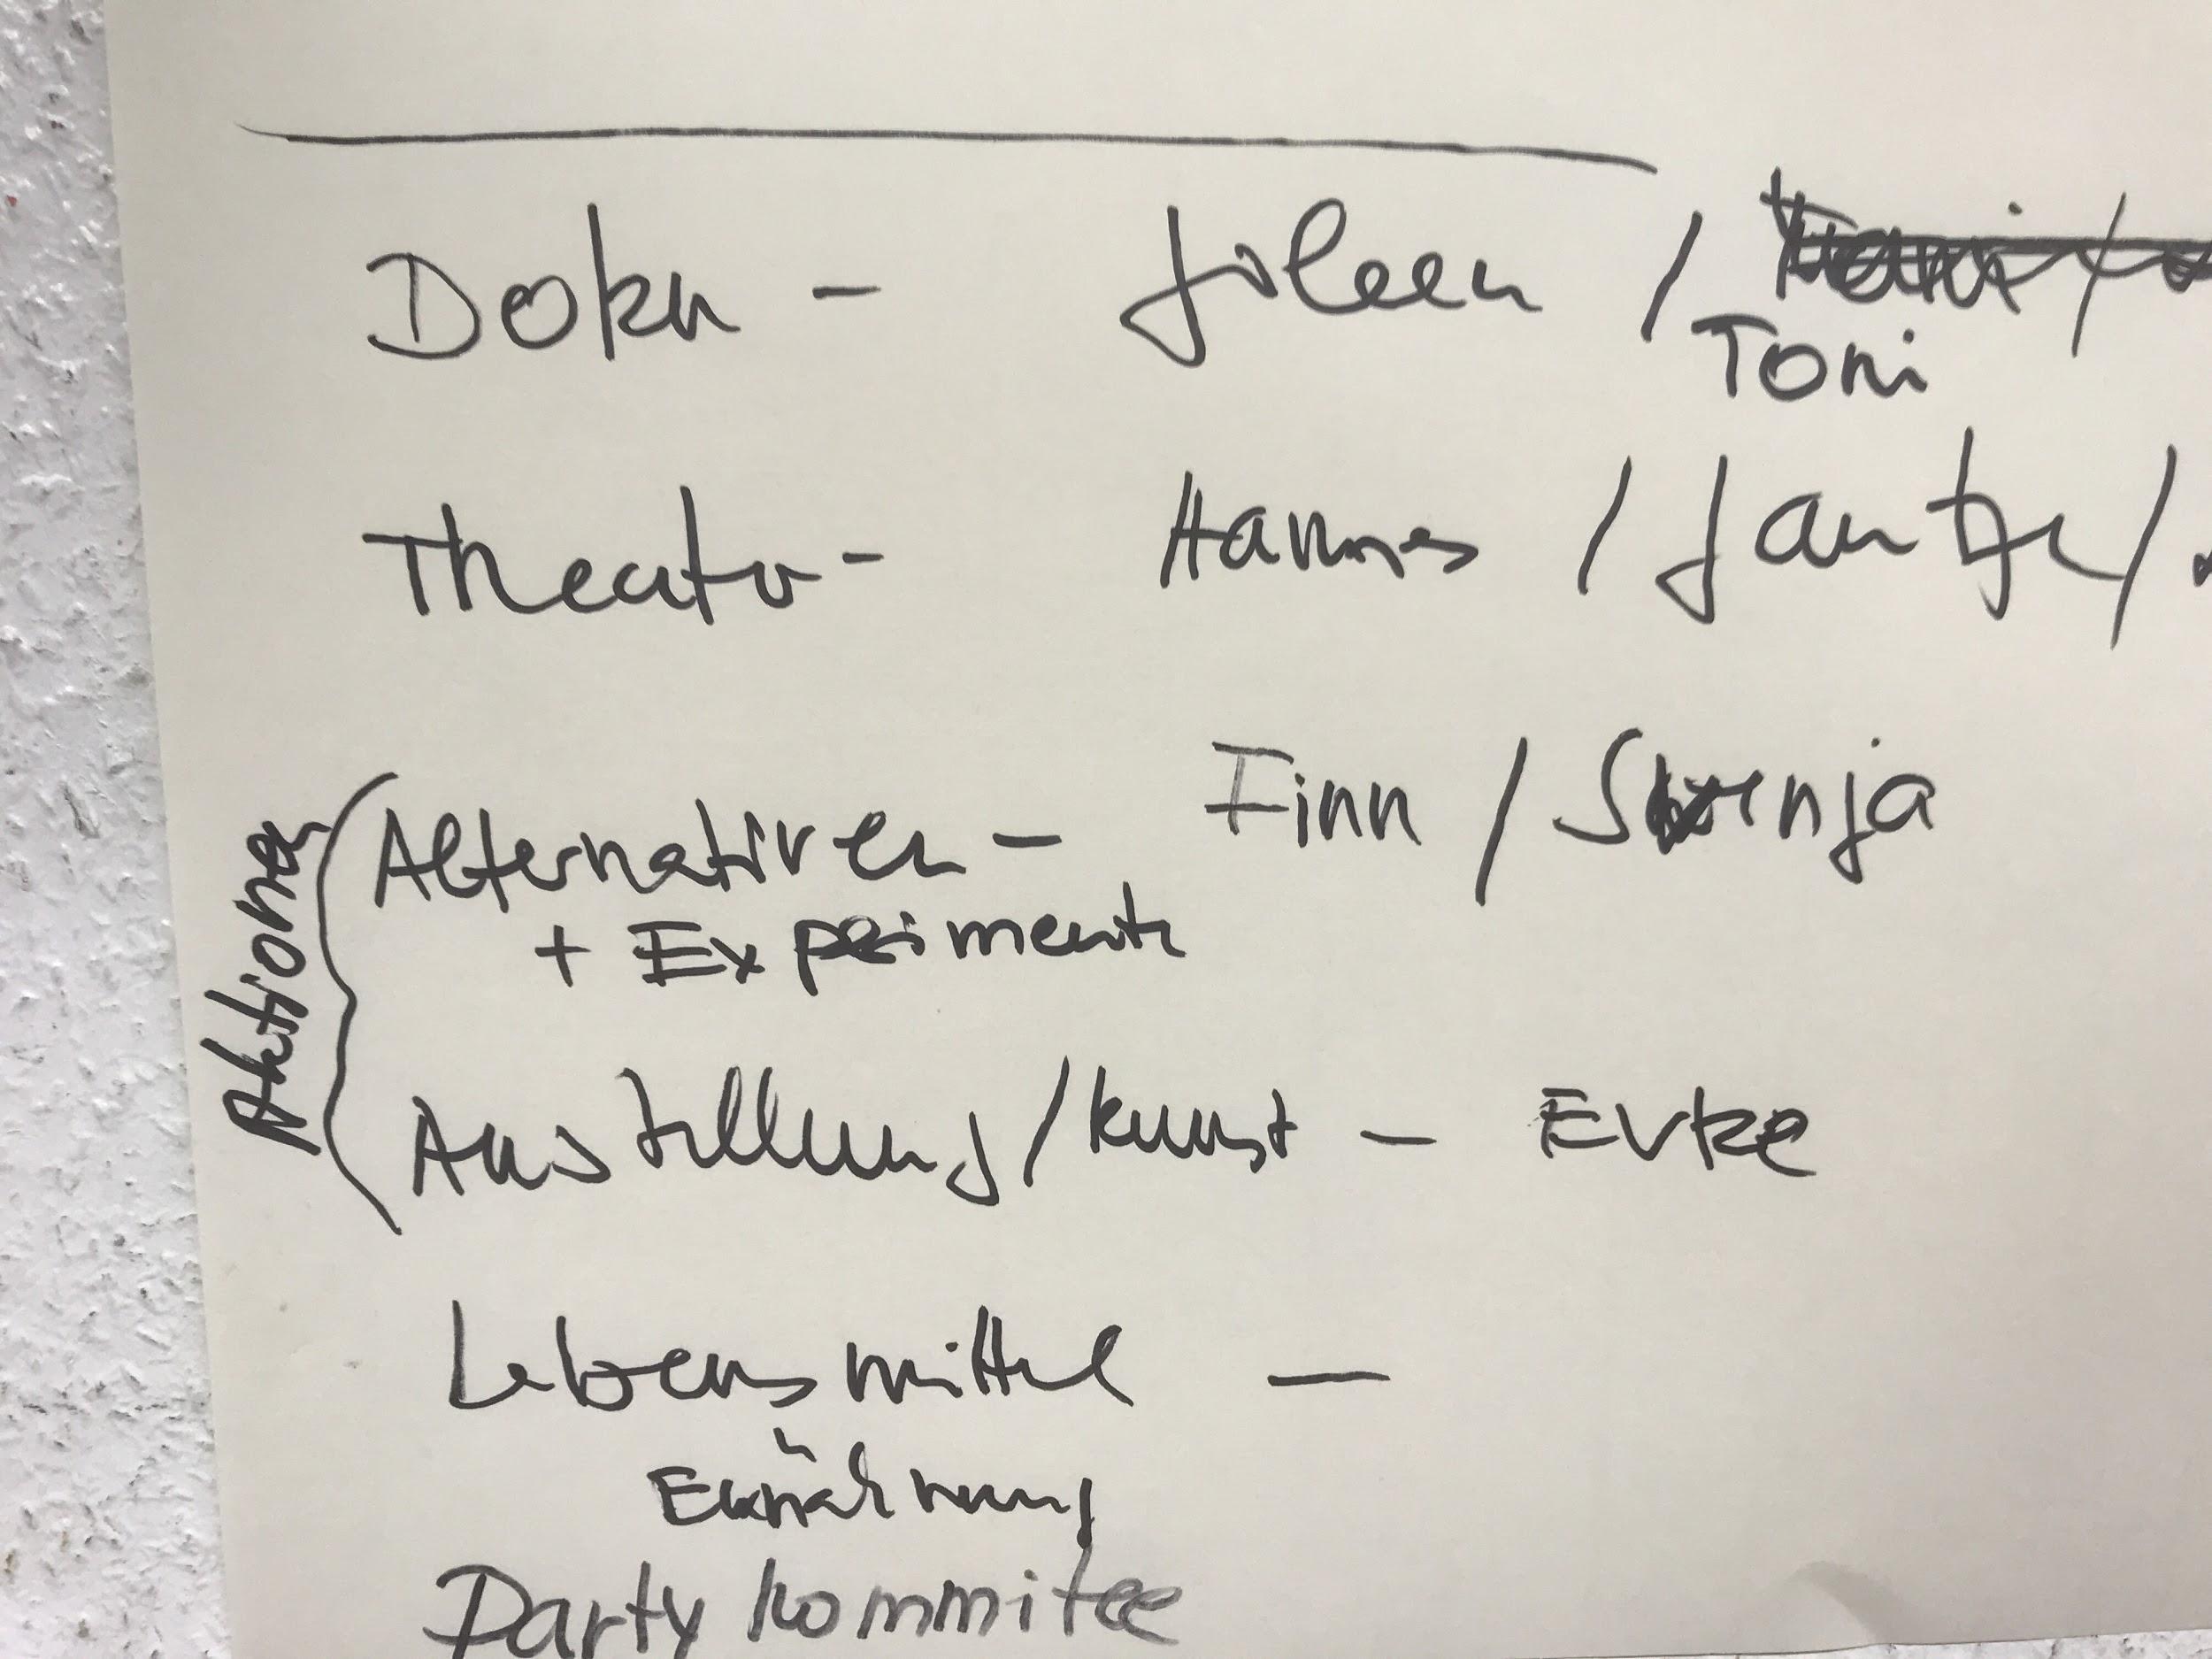 Doku - Joleen /
Toni
Theater - Hannes / Jantje /
Aktionen
Alternativen - Finn / Svenja
+ Experimente
Ausstellung / Kunst - Evke
Lebensmittel -
Ernährung
Party kommitee